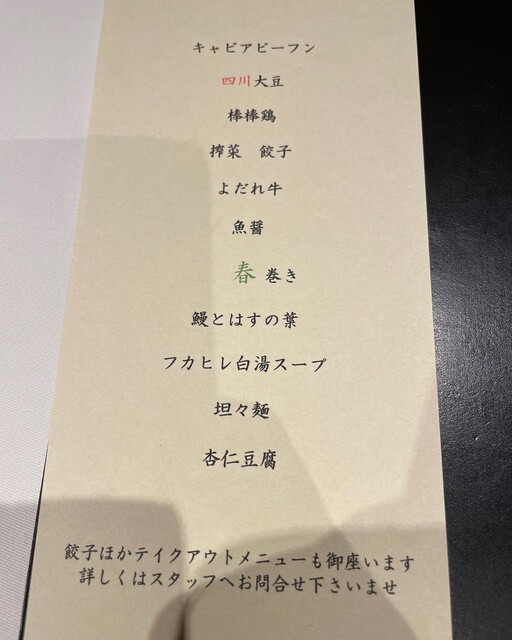 キャビアビーフン
四川大豆
棒棒鶏
搾菜　餃子
よだれ牛
魚醤
春巻き
鰻とはすの葉
フカヒレ白湯スープ
坦々麺
杏仁豆腐
餃子ほかテイクアウトメニューも御座います
詳しくはスタッフへお問合せ下さいませ